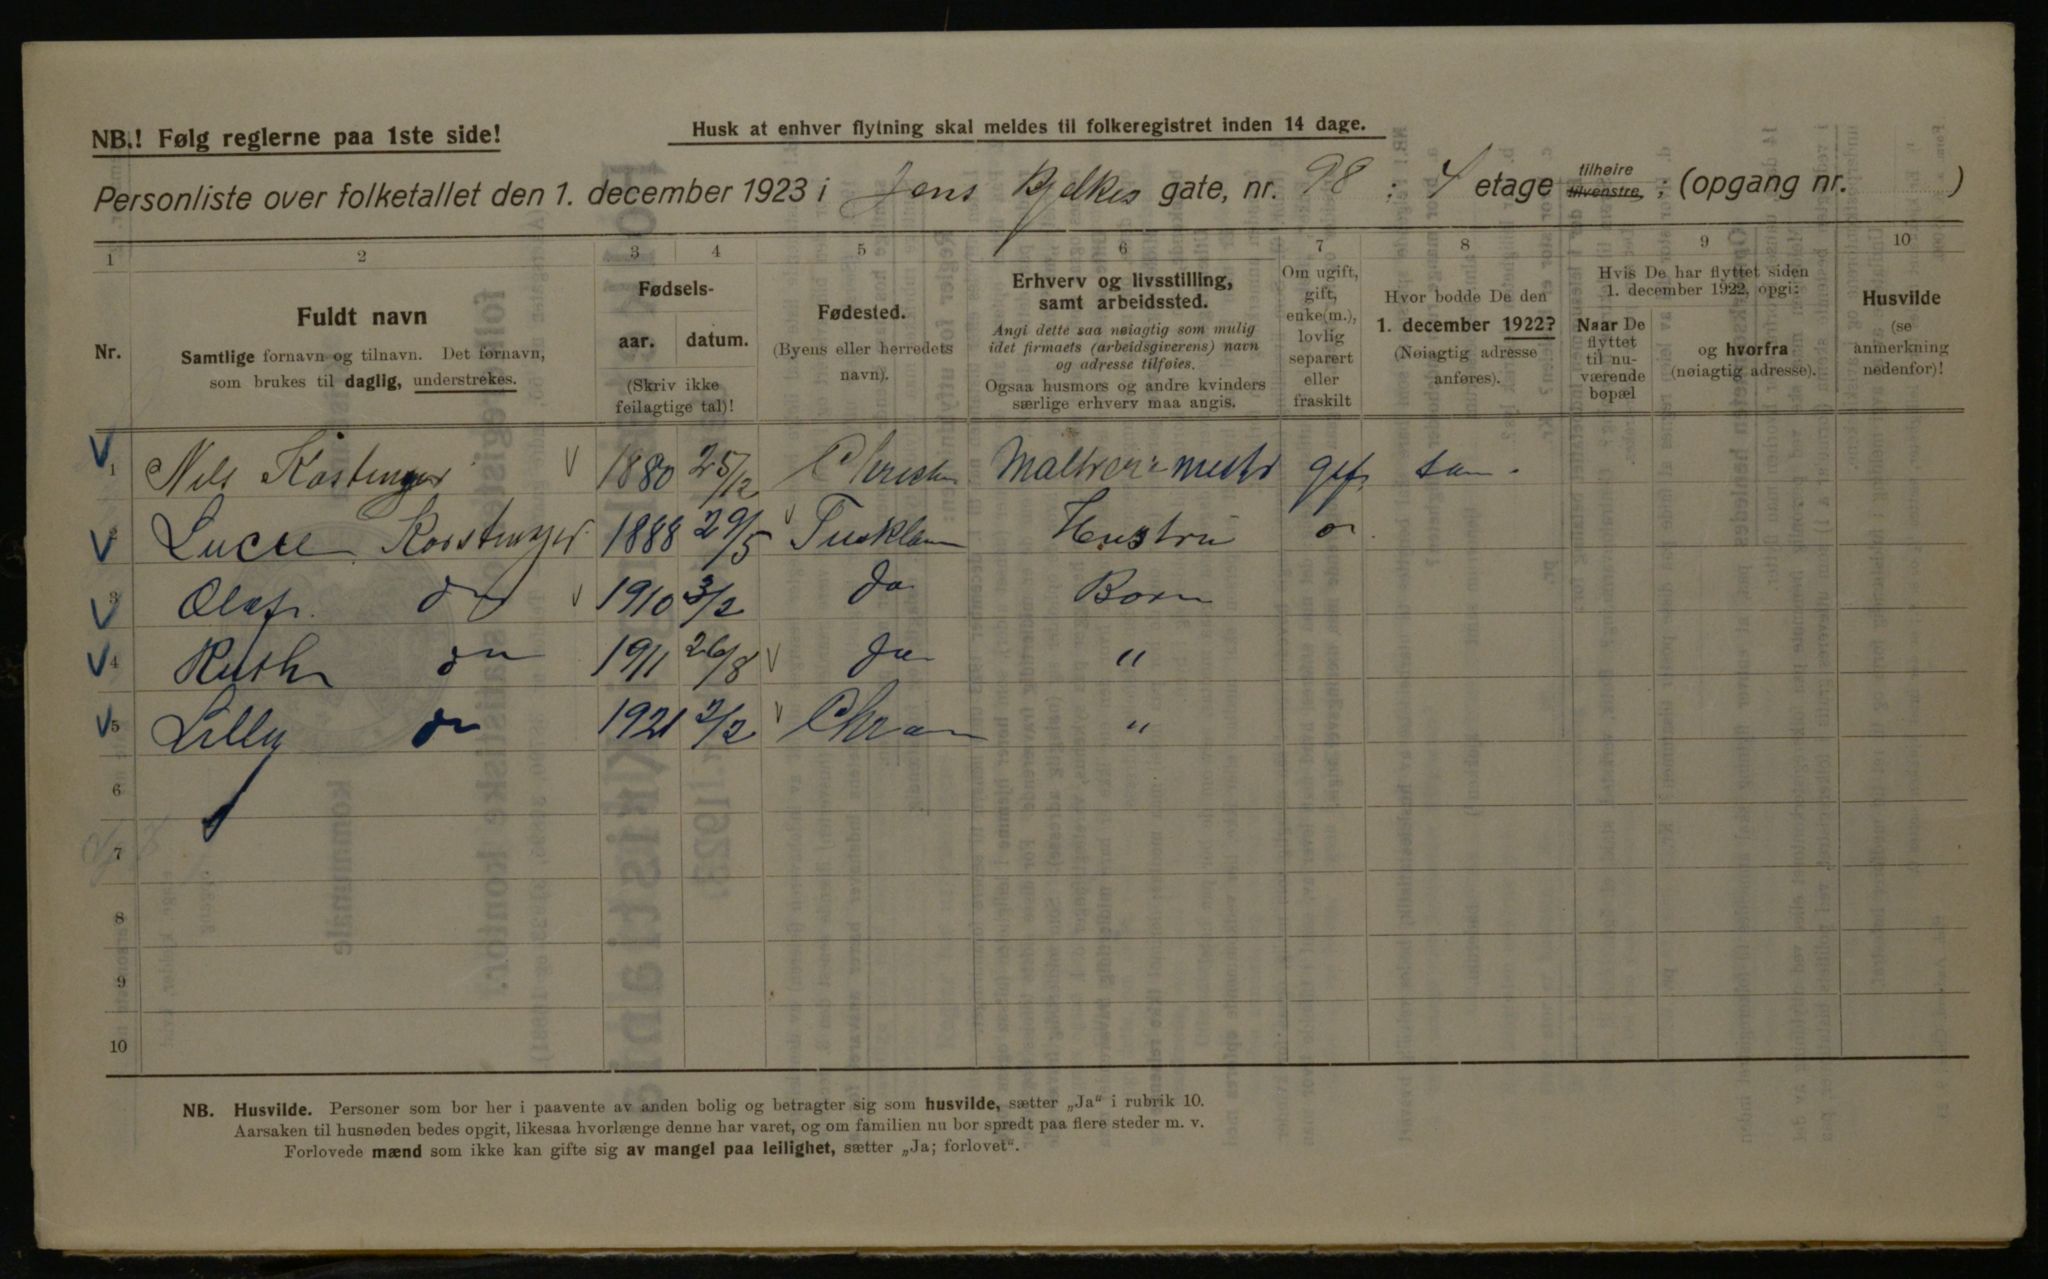 NB.! Følg reglerne paa 1ste side!
Husk at enhver flytning skal meldes til folkeregistret inden 14 dage.
Personliste over folketallet den 1. december 1923 i Jens Bjelkes gate, nr. 98 : 4 etage tilhøire tilvenstre, ; (opgang nr. )
1 2 3 4 5 6 7 8 9 10
Nr.
Fuldt navn
Samtlige fornavn og tilnavn. Det fornavn,
som brukes til daglig, understrekes.
Fødsels-
aar. datum.
(Skriv ikke
feilagtige tal)!
Fødested.
(Byens eller herredets
navn).
Erhverv og livsstilling,
samt arbeidssted.
Angi dette saa nøiagtig som mulig
idet firmaets (arbeidsgiverens) navn
og adresse tilføies.
Ogsaa husmors og andre kvinders
særlige erhverv maa angis.
Om ugift,
gift,
enke(m.),
lovlig
separert
eller
fraskilt
Hvor bodde De den
1. december 1922?
(Nøiagtig adresse
anføres).
Hvis De har flyttet siden
1. december 1922, opgi:
Naar De
flyttet
til nu-
værende
bopæl
og hvorfra
(nøiagtig adresse).
Husvilde
(se
anmerkning
nedenfor)!
1 Nils 1880 25/12 gift sam.
2 1888 29/5 Hustru do
3 Olaf. do 1910 3/2 do Barn
4 Ruth do 1911 26/8 do "
5 Lilly do 1921 2/2 Chra "
6
7
8
9
10
NB. Husvilde. Personer som bor her i paavente av anden bolig og betragter sig som husvilde, sætter „Ja“ i rubrik 10.
Aarsaken til husnøden bedes opgit, likesaa hvorlænge denne har varet, og om familien nu bor spredt paa flere steder m. v.
Forlovede mænd som ikke kan gifte sig av mangel paa leilighet, sætter „Ja; forlovet“.